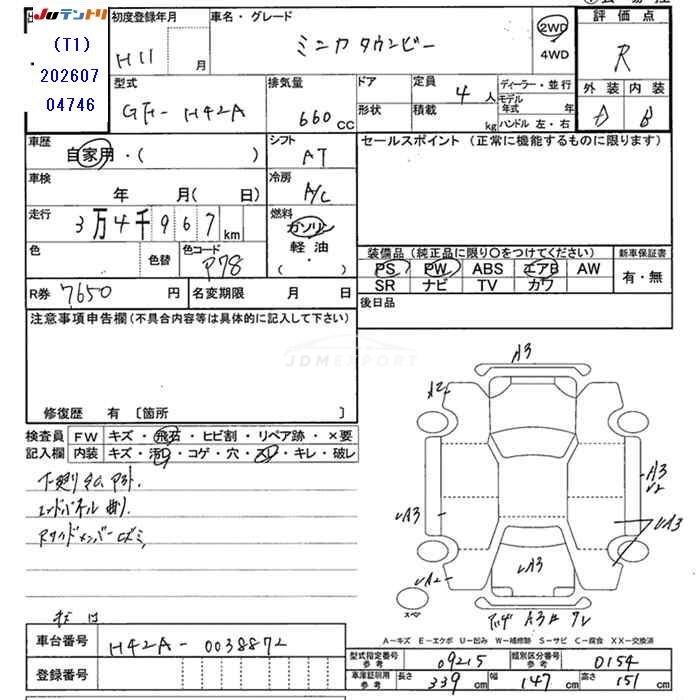 JUテントリ
(T1)
202607
04746
初度登録年月
H11 月
車名・グレード
ミニカ タウンビー
2WD
4WD
評価点
R
外装 内装
D B
型式
GF- H42A
排気量
660 CC
ドア
形状
定員
4 人
積載
kg
ディーラー・並行
モデル年式 年
ハンドル 左・右
車歴
自家用・( )
シフト
AT
セールスポイント (正常に機能するものに限ります)
車検
年 月( 日)
冷房
A/C
走行
3万4千967 km
燃料
ガソリン
軽・油
( ・ )
色
色替
色コード
P78
装備品 (純正品に限り〇をつけてください)
新車保証書
PS PW ABS エアB AW
SR ナビ TV カワ
有・無
R券 7650 円
名変期限 月 日
後日品
注意事項申告欄 (不具合内容等は具体的に記入して下さい)
JDMEXPORT
修復歴 有 〔箇所 〕
検査員
記入欄
FW キズ・飛石・ヒビ割・リペア跡・×要
内装 キズ・汚れ・コゲ・穴・スレ・キレ・破レ
下廻りサビ、
エンドパネル曲り、
A3
A2
A3
U2
UA3
UA3
UA3
UA2
スペア
A3
A-キズ E-エクボ U-凹み W-補修跡 S-サビ C-腐食 XX-交換済
車台番号
H42A-0038872
登録番号
型式指定番号 参考 09215
類別区分番号 参考 0154
車庫証明用 参考
長さ 339 cm
幅 147 cm
高さ 151 cm